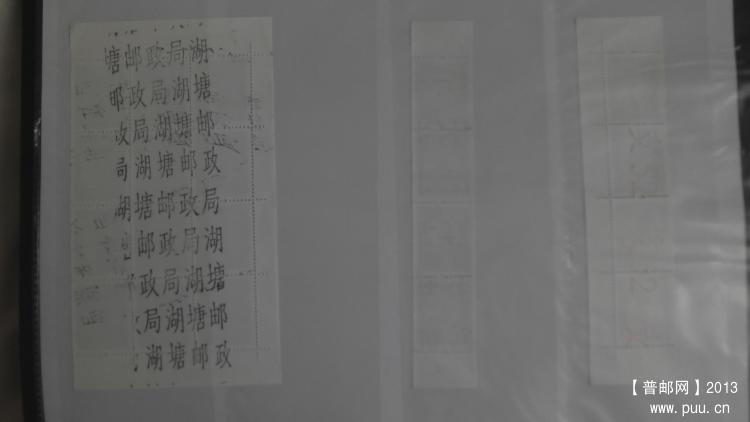 塘邮政局湖
邮政局湖塘
政局湖塘邮
局湖塘邮政
湖塘邮政局
塘邮政局湖
邮政局湖塘
政局湖塘邮
湖塘邮政
【普邮网】2013
www.puu.cn